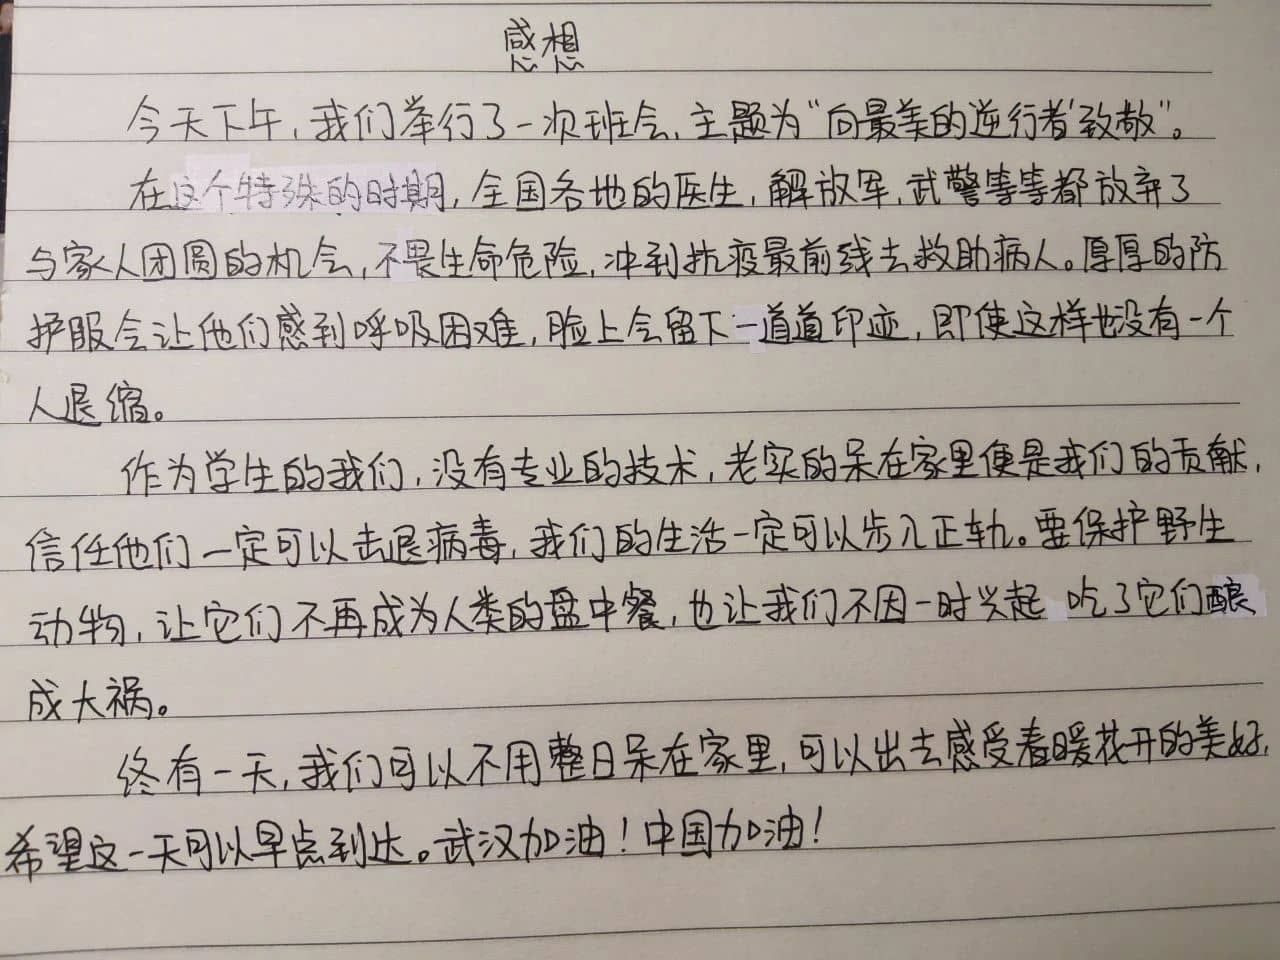 感想
今天下午，我们举行了一次班会，主题为“向最美的逆行者致敬”。
在这个特殊的时期，全国各地的医生，解放军，武警等等都放弃了
与家人团圆的机会，不畏生命危险，冲到抗疫最前线去救助病人。厚厚的防
护服会让他们感到呼吸困难，脸上会留下一道道印迹，即使这样也没有一个
人退缩。
作为学生的我们，没有专业的技术，老实的呆在家里便是我们的贡献，
信任他们一定可以击退病毒，我们的生活一定可以步入正轨。要保护野生
动物，让它们不再成为人类的盘中餐，也让我们不因一时兴起吃了它们酿
成大祸。
终有一天，我们可以不用整日呆在家里，可以出去感受春暖花开的美好，
希望这一天可以早点到达。武汉加油！中国加油！